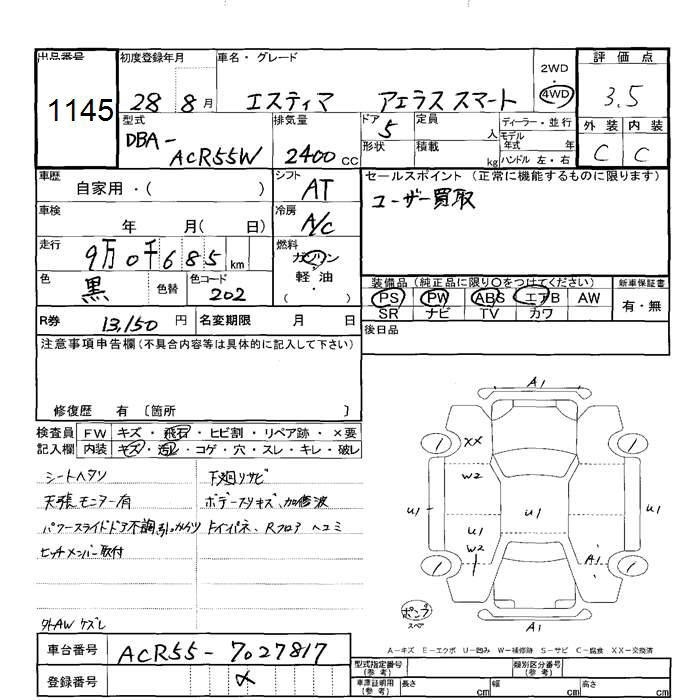 出品番号 1145
初度登録年月 28 8月
車名・グレード エスティマ アエラス スマート
2WD・4WD
評価点 3.5
外装 内装
C C
型式 DBA-ACR55W
排気量 2400cc
ドア 5
形状
定員 人
積載 kg
ディーラー・並行
モデル年式 年
ハンドル 左・右
車歴 自家用・( )
シフト AT
セールスポイント (正常に機能するものに限ります)
ユーザー買取
車検 年 月( 日)
冷房 A/C
走行 9万0千685km
燃料 ガソリン・軽油・( )
色 黒 色替
色コード 202
装備品(純正品に限り○をつけてください)
PS PW ABS エアB AW
SR ナビ TV カワ
新車保証書 有・無
R券 13,150円
名変期限 月 日
後日品
注意事項申告欄(不具合内容等は具体的に記入して下さい)
修復歴 有〔箇所 〕
検査員記入欄
FW キズ・飛石・ヒビ割・リペア跡・×要
内装 キズ・汚レ・コゲ・穴・スレ・キレ・破レ
シートヘタリ
天張モニター有
パワースライドドア不調引っかかり
ヒッチメンバー取付
外AWケズレ
下廻リサビ
ボデースリキズ、加修波
トインパネ、Rフロアヘコミ
A1
XX
W2
U1
U1
U1
U1
W2
A1
ポンプ
スペ
A1
A-キズ E-エクボ U-凹み W-補修跡 S-サビ C-腐食 XX-交換済
車台番号 ACR55-7027817
登録番号 メ
型式指定番号(参考)
類別区分番号(参考)
車庫証明用(参考) 長さ cm 幅 cm 高さ cm